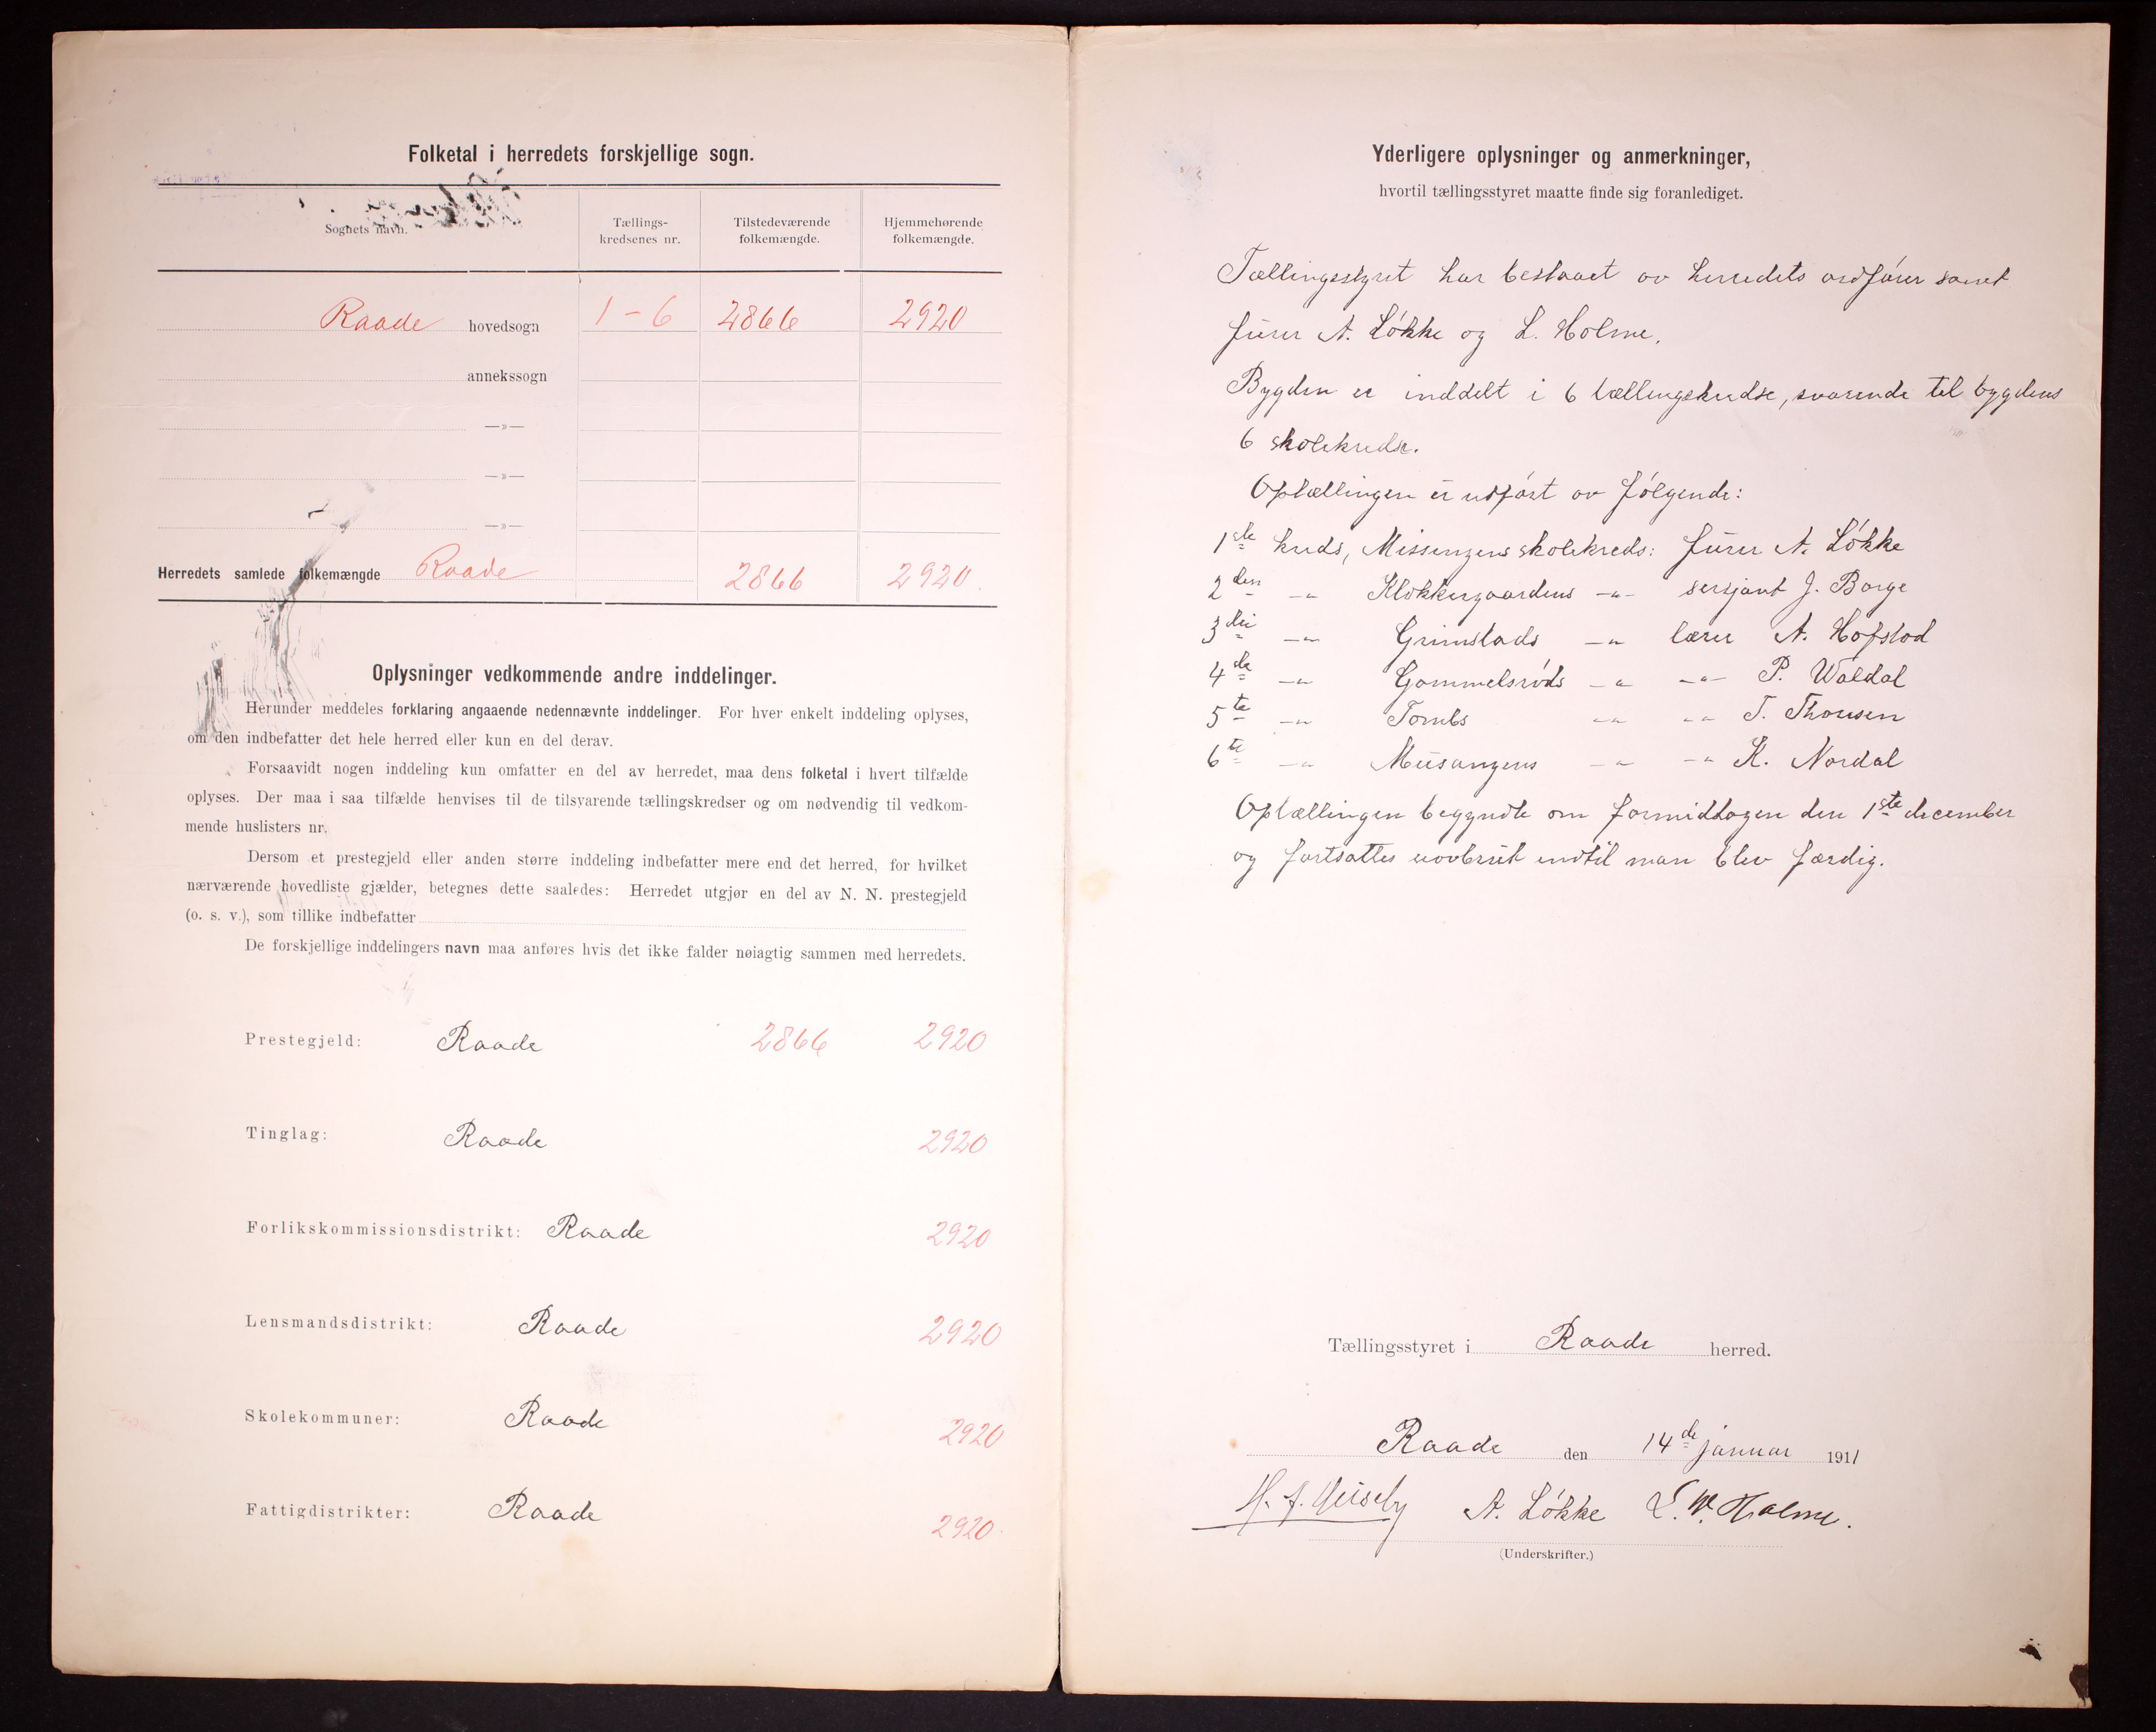 Folketal i herredets forskjellige sogn.
Sognets navn. Tællings-kredsenes nr. Tilstedeværende folkemængde. Hjemmehørende folkemængde.
Raade hovedsogn 1-6 2866 2920
annekssogn
—»—
—»—
—»—
Herredets samlede folkemængde Raade 2866 2920.
Oplysninger vedkommende andre inddelinger.
Herunder meddeles forklaring angaaende nedennævnte inddelinger. For hver enkelt inddeling oplyses,
om den indbefatter det hele herred eller kun en del derav.
Forsaavidt nogen inddeling kun omfatter en del av herredet, maa dens folketal i hvert tilfælde
oplyses. Der maa i saa tilfælde henvises til de tilsvarende tællingskredser og om nødvendig til vedkom-
mende huslisters nr.
Dersom et prestegjeld eller anden større inddeling indbefatter mere end det herred, for hvilket
nærværende hovedliste gjælder, betegnes dette saaledes: Herredet utgjør en del av N. N. prestegjeld
(o. s. v.), som tillike indbefatter
De forskjellige inddelingers navn maa anføres hvis det ikke falder nøiagtig sammen med herredets.
Prestegjeld: Raade 2866 2920
Tinglag: Raade 2920
Forlikskommissionsdistrikt: Raade 2920
Lensmandsdistrikt: Raade 2920
Skolekommuner: Raade 2920
Fattigdistrikter: Raade 2920.
Yderligere oplysninger og anmerkninger,
hvortil tællingsstyret maatte finde sig foranlediget.
Tællingsstyret har bestaaet av herredets ordfører samt
lærer A. Løkke og L. Holme.
Bygden er inddelt i 6 tællingskredse, svarende til bygdens
6 skolekredse.
Optællingen er utført av følgende:
1ste kreds, Missingens skolekreds: lærer A. Løkke
2den -"- Klokkergaardens -"- sersjant J. Borge
3die -"- Grimstads -"- lærer A. Hofstad
4de -"- Gammelsrøds -"- -"- P. Waldal
5te -"- Tombs -"- -"- T. Thousen
6te -"- -"- -"- K. Nordal
Optællingen begyndte om formiddagen den 1ste december
og fortsattes uavbrut indtil man blev færdig.
Tællingsstyret i Raade herred.
Raade den 14de januar 1911
H. J. A. Løkke L. W. Holme.
(Underskrifter.)